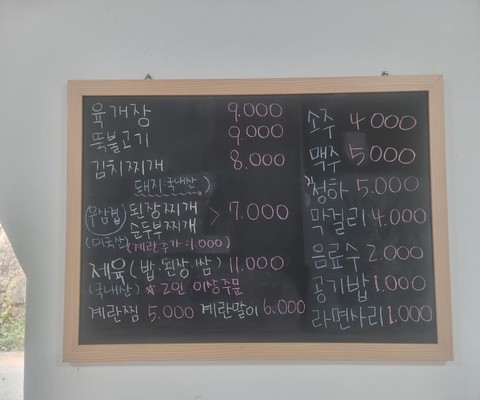 육개장 9.000
뚝불고기 9000
김치찌개 8.000
돼지:국내산)
(우삼겹) 된장찌개
순두부찌개 > 7.000
(미국산) (계란추가:1.000)
제육(밥.된장.쌈) 11.000
(국내산) ☆2인 이상주문
계란찜 5.000 계란말이 6.000
소주 4000
맥주 5000
청하 5.000
막걸리 4.000
음료수 2.000
공기밥 1.000
라면사리 1.000